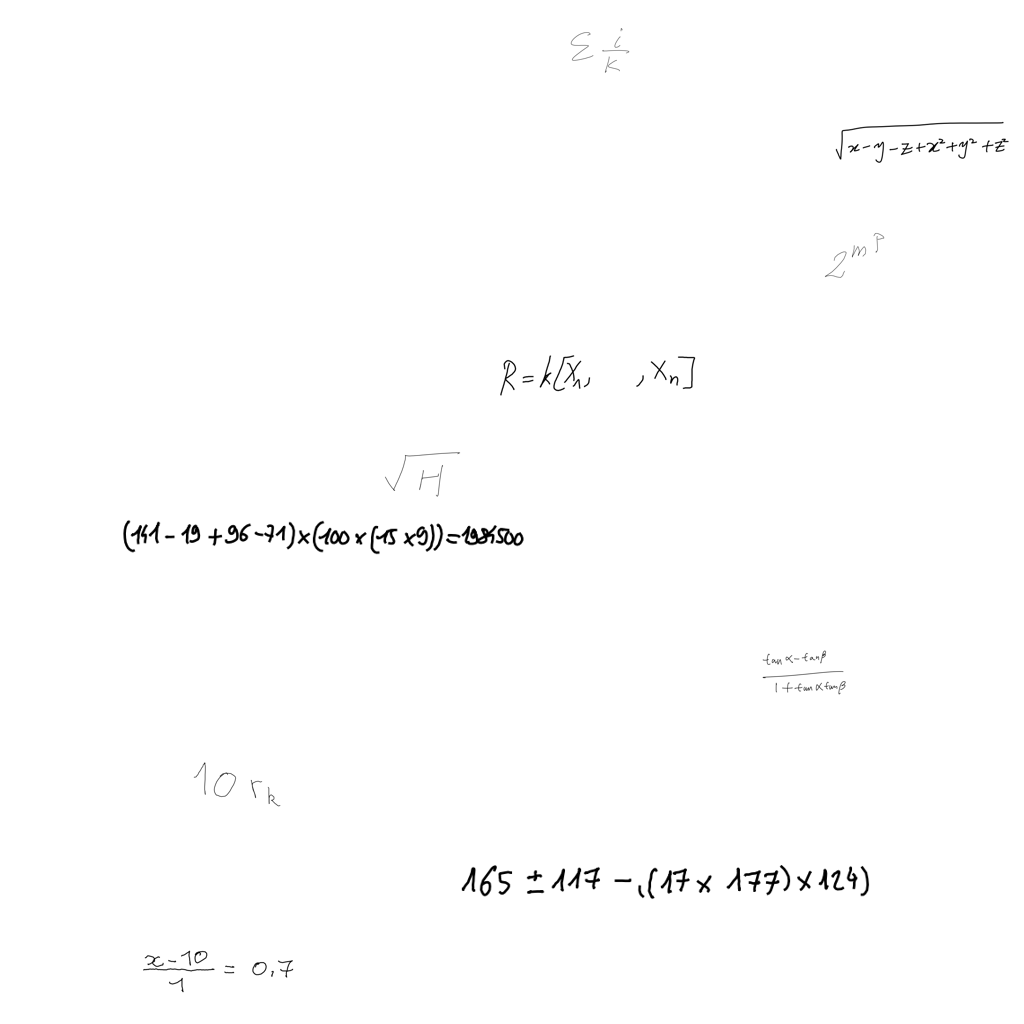 Σ i/k
√(x-y-z+x²+y²+z²)
2^m^p
R=k[X₁, ,Xₙ]
√H
(141-19+96-71)×(100×(15×9))=1984500
(tan α-tan β)/(1+tan α tan β)
10 r_k
165 ± 117 - ((17 × 177) × 124)
(x-10)/1 = 0,7